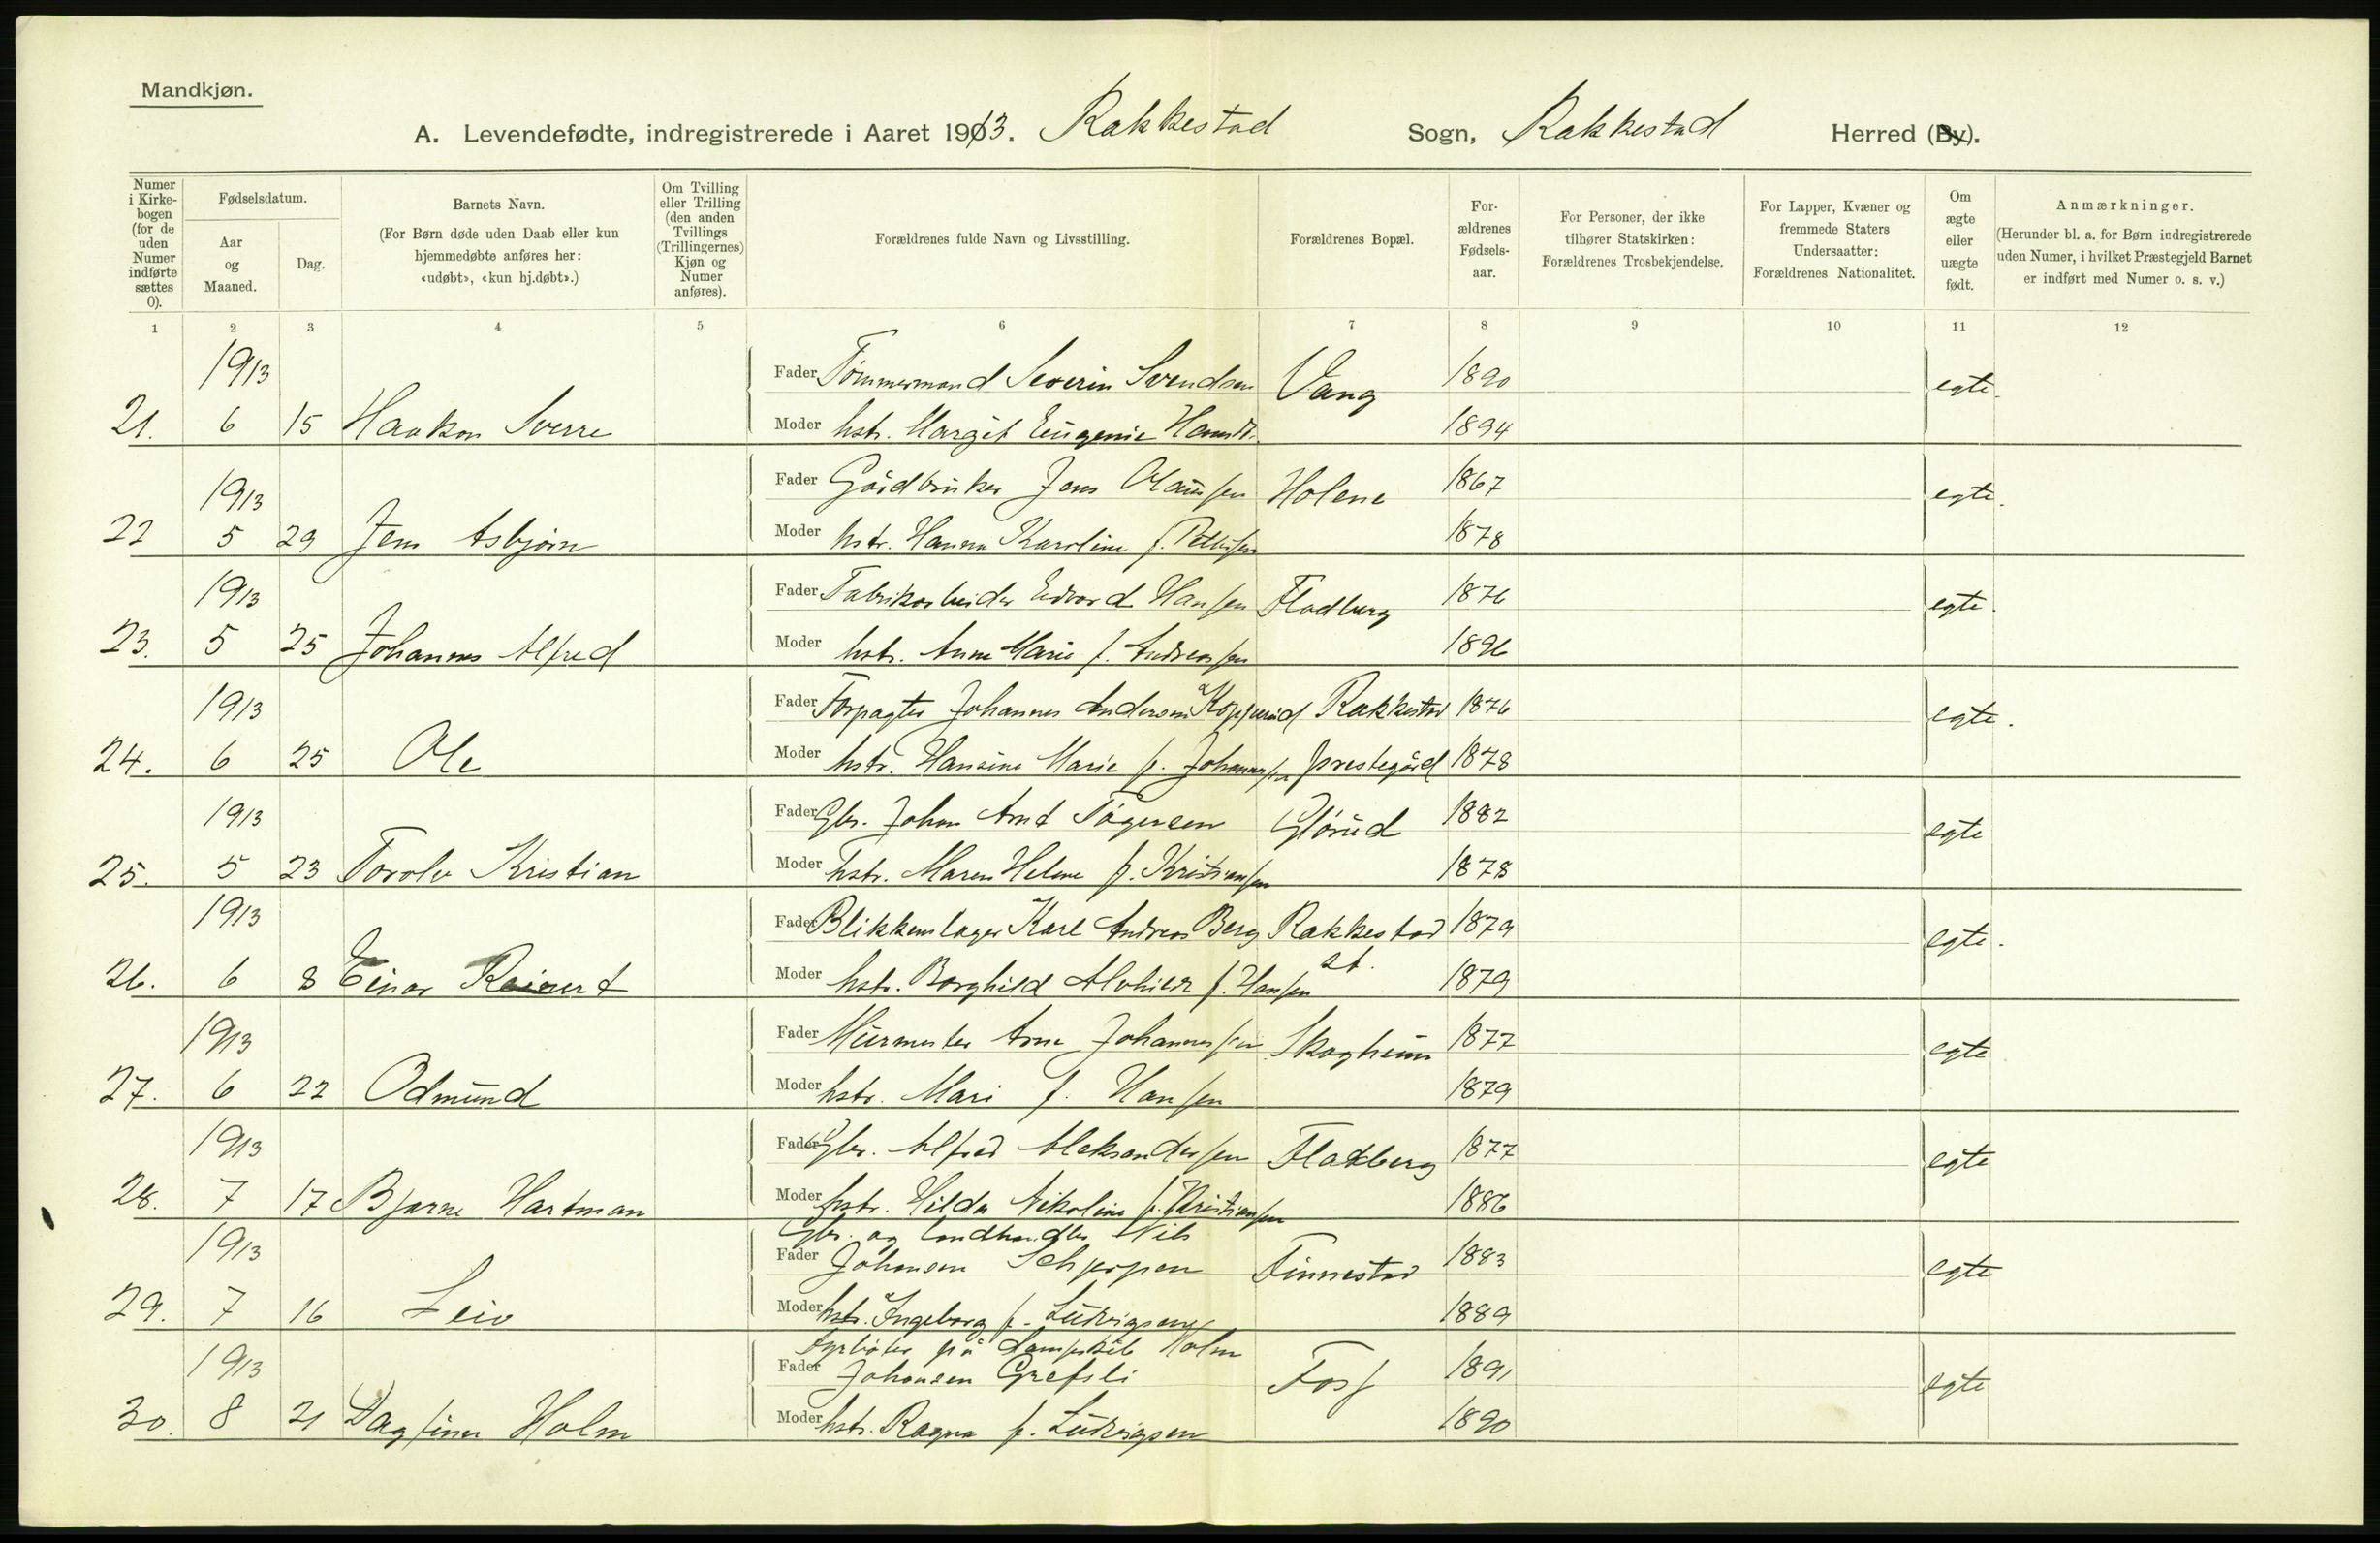 Mandkjøn.
A. Levendefødte, indregistrerede i Aaret 1913. Rakkestad Sogn, Rakkestad Herred (By).
Numer i Kirkebogen (for de uden Numer indførte sættes 0).
Fødselsdatum.
Aar og Maaned.
Dag.
Barnets Navn.
(For Børn døde uden Daab eller kun hjemmedøbte anføres her: «udøbt», «kun hj.døbt».)
Om Tvilling eller Trilling (den anden Tvillings (Trillingernes) Kjøn og Numer anføres).
Forældrenes fulde Navn og Livsstilling.
Forældrenes Bopæl.
Forældrenes Fødselsaar.
For Personer, der ikke tilhører Statskirken: Forældrenes Trosbekjendelse.
For Lapper, Kvæner og fremmede Staters Undersaatter: Forældrenes Nationalitet.
Om ægte eller uægte født.
Anmærkninger.
(Herunder bl. a. for Børn indregistrerede uden Numer, i hvilket Præstegjeld Barnet er indført med Numer o. s. v.)
1 2 3 4 5 6 7 8 9 10 11 12
1913 Fader Tömmermand Severin Svendsen Vang 1890 egte.
21. 6 15 Haakon Sverre Moder hstr. Margit Eugenie 1894
1913 Fader Gårdbruker Jens Olaussen Holene 1867 egte.
22 5 29 Jens Asbjørn Moder hstr. Hanna Karoline f. Pettersen 1878
1913 Fader Fabrikarbeider Edvard Hansen Fladberg 1876 egte.
23. 5 25 Johannes Alfred Moder hstr. Anne Marie f. Andreassen 1896
1913 Fader Forpagter Johannes Andersen Kopperud Rakkestad 1876 egte.
24. 6 25 Ole Moder hstr. Hansine Marie f. Johannessen prestegård 1878
1913 Fader Gbr. Johan Arnt Tögersen Glörud 1882 egte
25. 5 23 Torolv Kristian Moder hstr. Maren Helene f. Kristiansen 1878
1913 Fader Blikkenslager Karl Andreas Berg Rakkestad 1879 egte.
26. 6 8 Einar Reinert Moder hstr. Borghild Alvhilde f. Hansen st. 1879
1913 Fader Murmester Arne Johannessen Skogheim 1877 egte
27. 6 22 Odmund Moder hstr. Mari f. Hansen 1879
1913 Fader Gbr. Alfred Aleksandersen Fladberg 1877 egte
28. 7 17 Bjarne Hartman Moder hstr. Hilda Nikoline f. Kristiansen 1886
Gbr. og landhandler Nils
1913 Fader Johansen Schjerpen Finnestad 1883 egte
29. 7 16 Leiv Moder hstr. Ingeborg f. Ludvigsen 1889
Fyrböter på dampskib Holm
1913 Fader Johansen Grefsli Foss 1891 egte
30. 8 21 Dagfinn Holm Moder hstr. Ragna f. Ludvigsen 1890